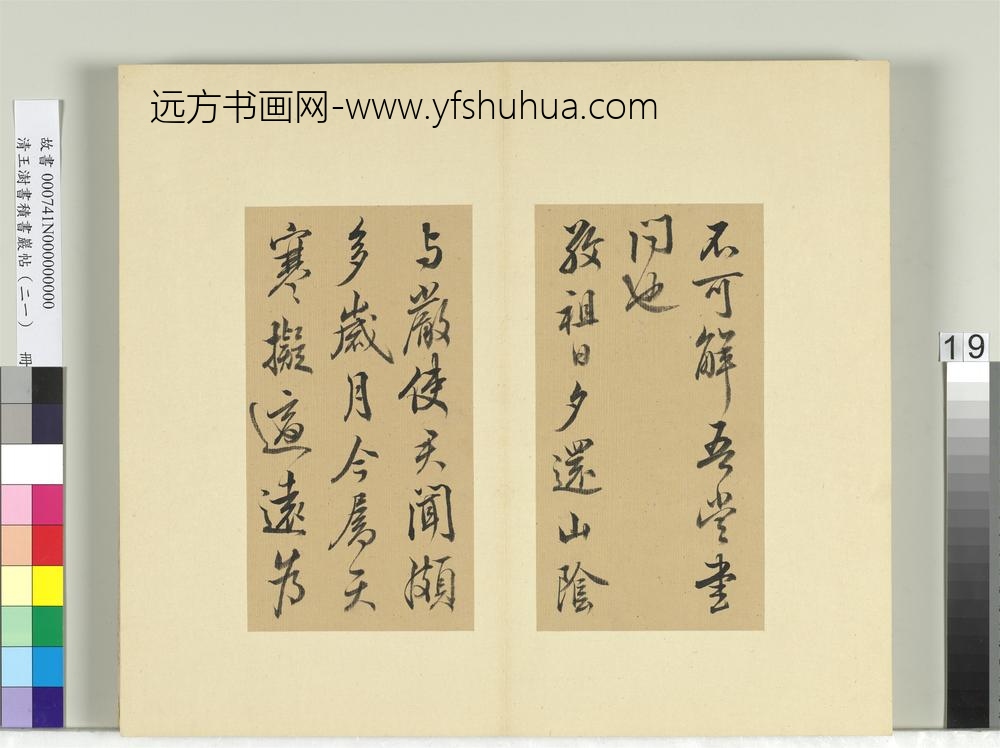 远方书画网-www.yfshuhua.com
不可解吾當重
問也
敬祖日夕還山陰
与嚴使君聞頗
多歲月今屬天
寒擬適遠為
故書 000741N000000000
清王澍書積書巖帖(二一) 冊
19